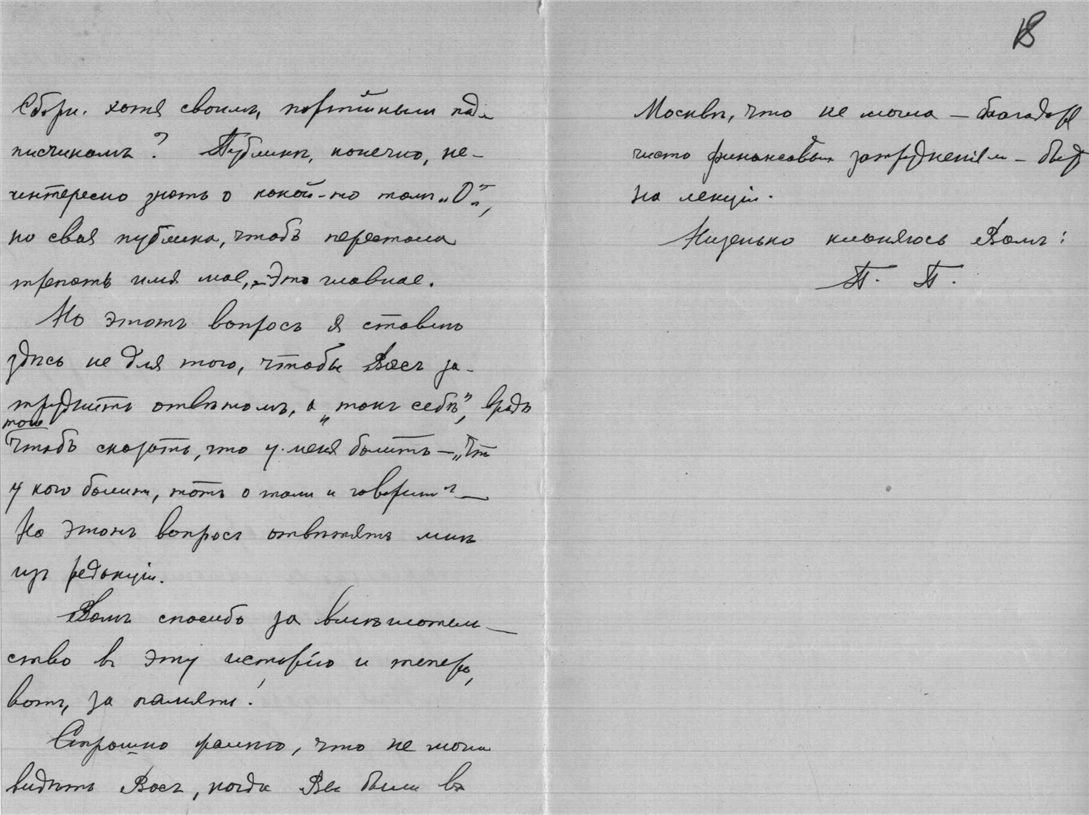 18
Сборн. хотя своимъ, партійнымъ под-
писчикамъ? Публикѣ, конечно, не-
интересно знать о какой-то тамъ „О“,
но своя публика, чтобъ перестала
трепать имя мое, – это главное.
Но этотъ вопросъ я ставлю
здѣсь не для того, чтобы Васъ за-
труднить отвѣтомъ, а „такъ себѣ“, врядъ
того
чтобъ сказать, что у меня болитъ – „Что
у кого болитъ, тотъ о томъ и говоритъ“ –
На этотъ вопросъ отвѣтятъ мнѣ
изъ редакціи.
Вамъ спасибо за вмѣшатель-
ство въ эту исторію и теперь,
вотъ, за память!
Страшно жалко, что не могла
видѣть Васъ, когда Вы были въ
Москвѣ, что не могла – благодаря
чисто финансовымъ затрудненіям – быть
на лекціи.
Низенько кланяюсь Вамъ:
П. П.